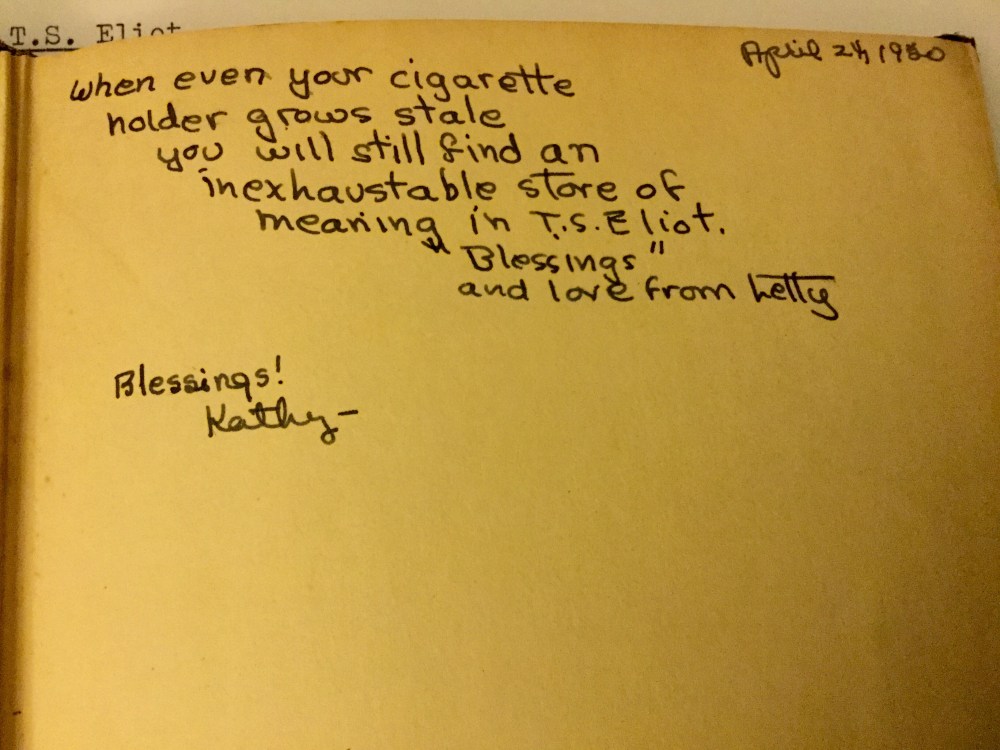 T.S. Eliot
April 24, 1950
when even your cigarette
holder grows stale
you will still find an
inexhaustable store of
meaning in T.S. Eliot.
"Blessings"
and love from Letty
Blessings!
Kathy-